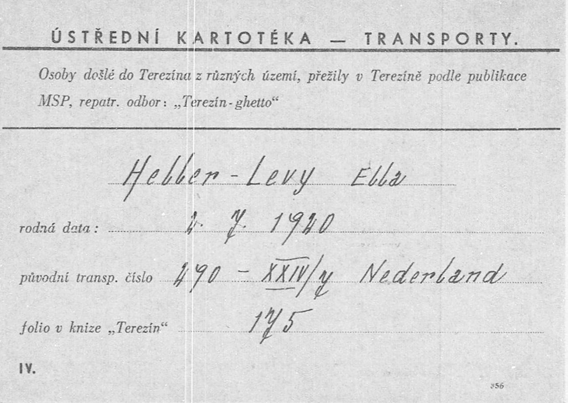 ÚSTŘEDNÍ KARTOTÉKA — TRANSPORTY.
Osoby došlé do Terezína z různých území, přežily v Terezíně podle publikace
MSP, repatr. odbor: „Terezín-ghetto"
Heller - Levy Ella
rodná data: 2. 7. 1920
původní transp. číslo 290 - XXIV/7 Nederland
folio v knize „Terezín" 175
IV.
256